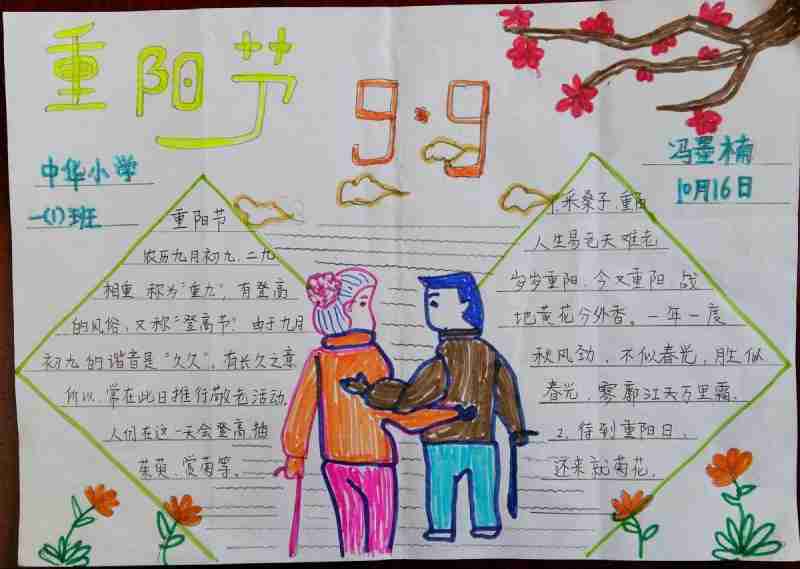 重阳节
9·9
中华小学
一(1)班
冯墨楠
10月16日
重阳节
农历九月初九,二九
相重,称为“重九”,有登高
的风俗,又称“登高节”由于九月
初九的谐音是“久久”,有长久之意
所以,常在此日推行敬老活动,
人们在这一天会登高,插
茱萸、赏菊等。
1、采桑子、重阳
人生易老天难老
岁岁重阳,今又重阳,战
地黄花分外香。一年一度
秋风劲,不似春光,胜似
春光,寥廓江天万里霜.
2、待到重阳日,
还来就菊花.